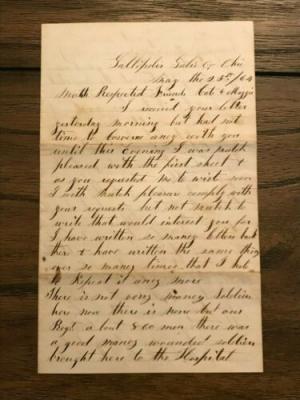 Gallipolis Galis Co Ohio
May the 25th/64
Most Respected Friends Cal & Maggie
I received your letter
yesterday morning but had not
time to converse any with you
until this Evening I was much
pleased with the first sheet &
as you requested me to write soon
I with much pleasure comply with
your request but not much to
write that would interest you for
I have written so many letters but
have written the same thing
over so many times that I hate
to Repeat it any more
There is not very many soldiers
here now there is none but our
Regt about 800 men there was
a good many wounded soldiers
brought here to the Hospital